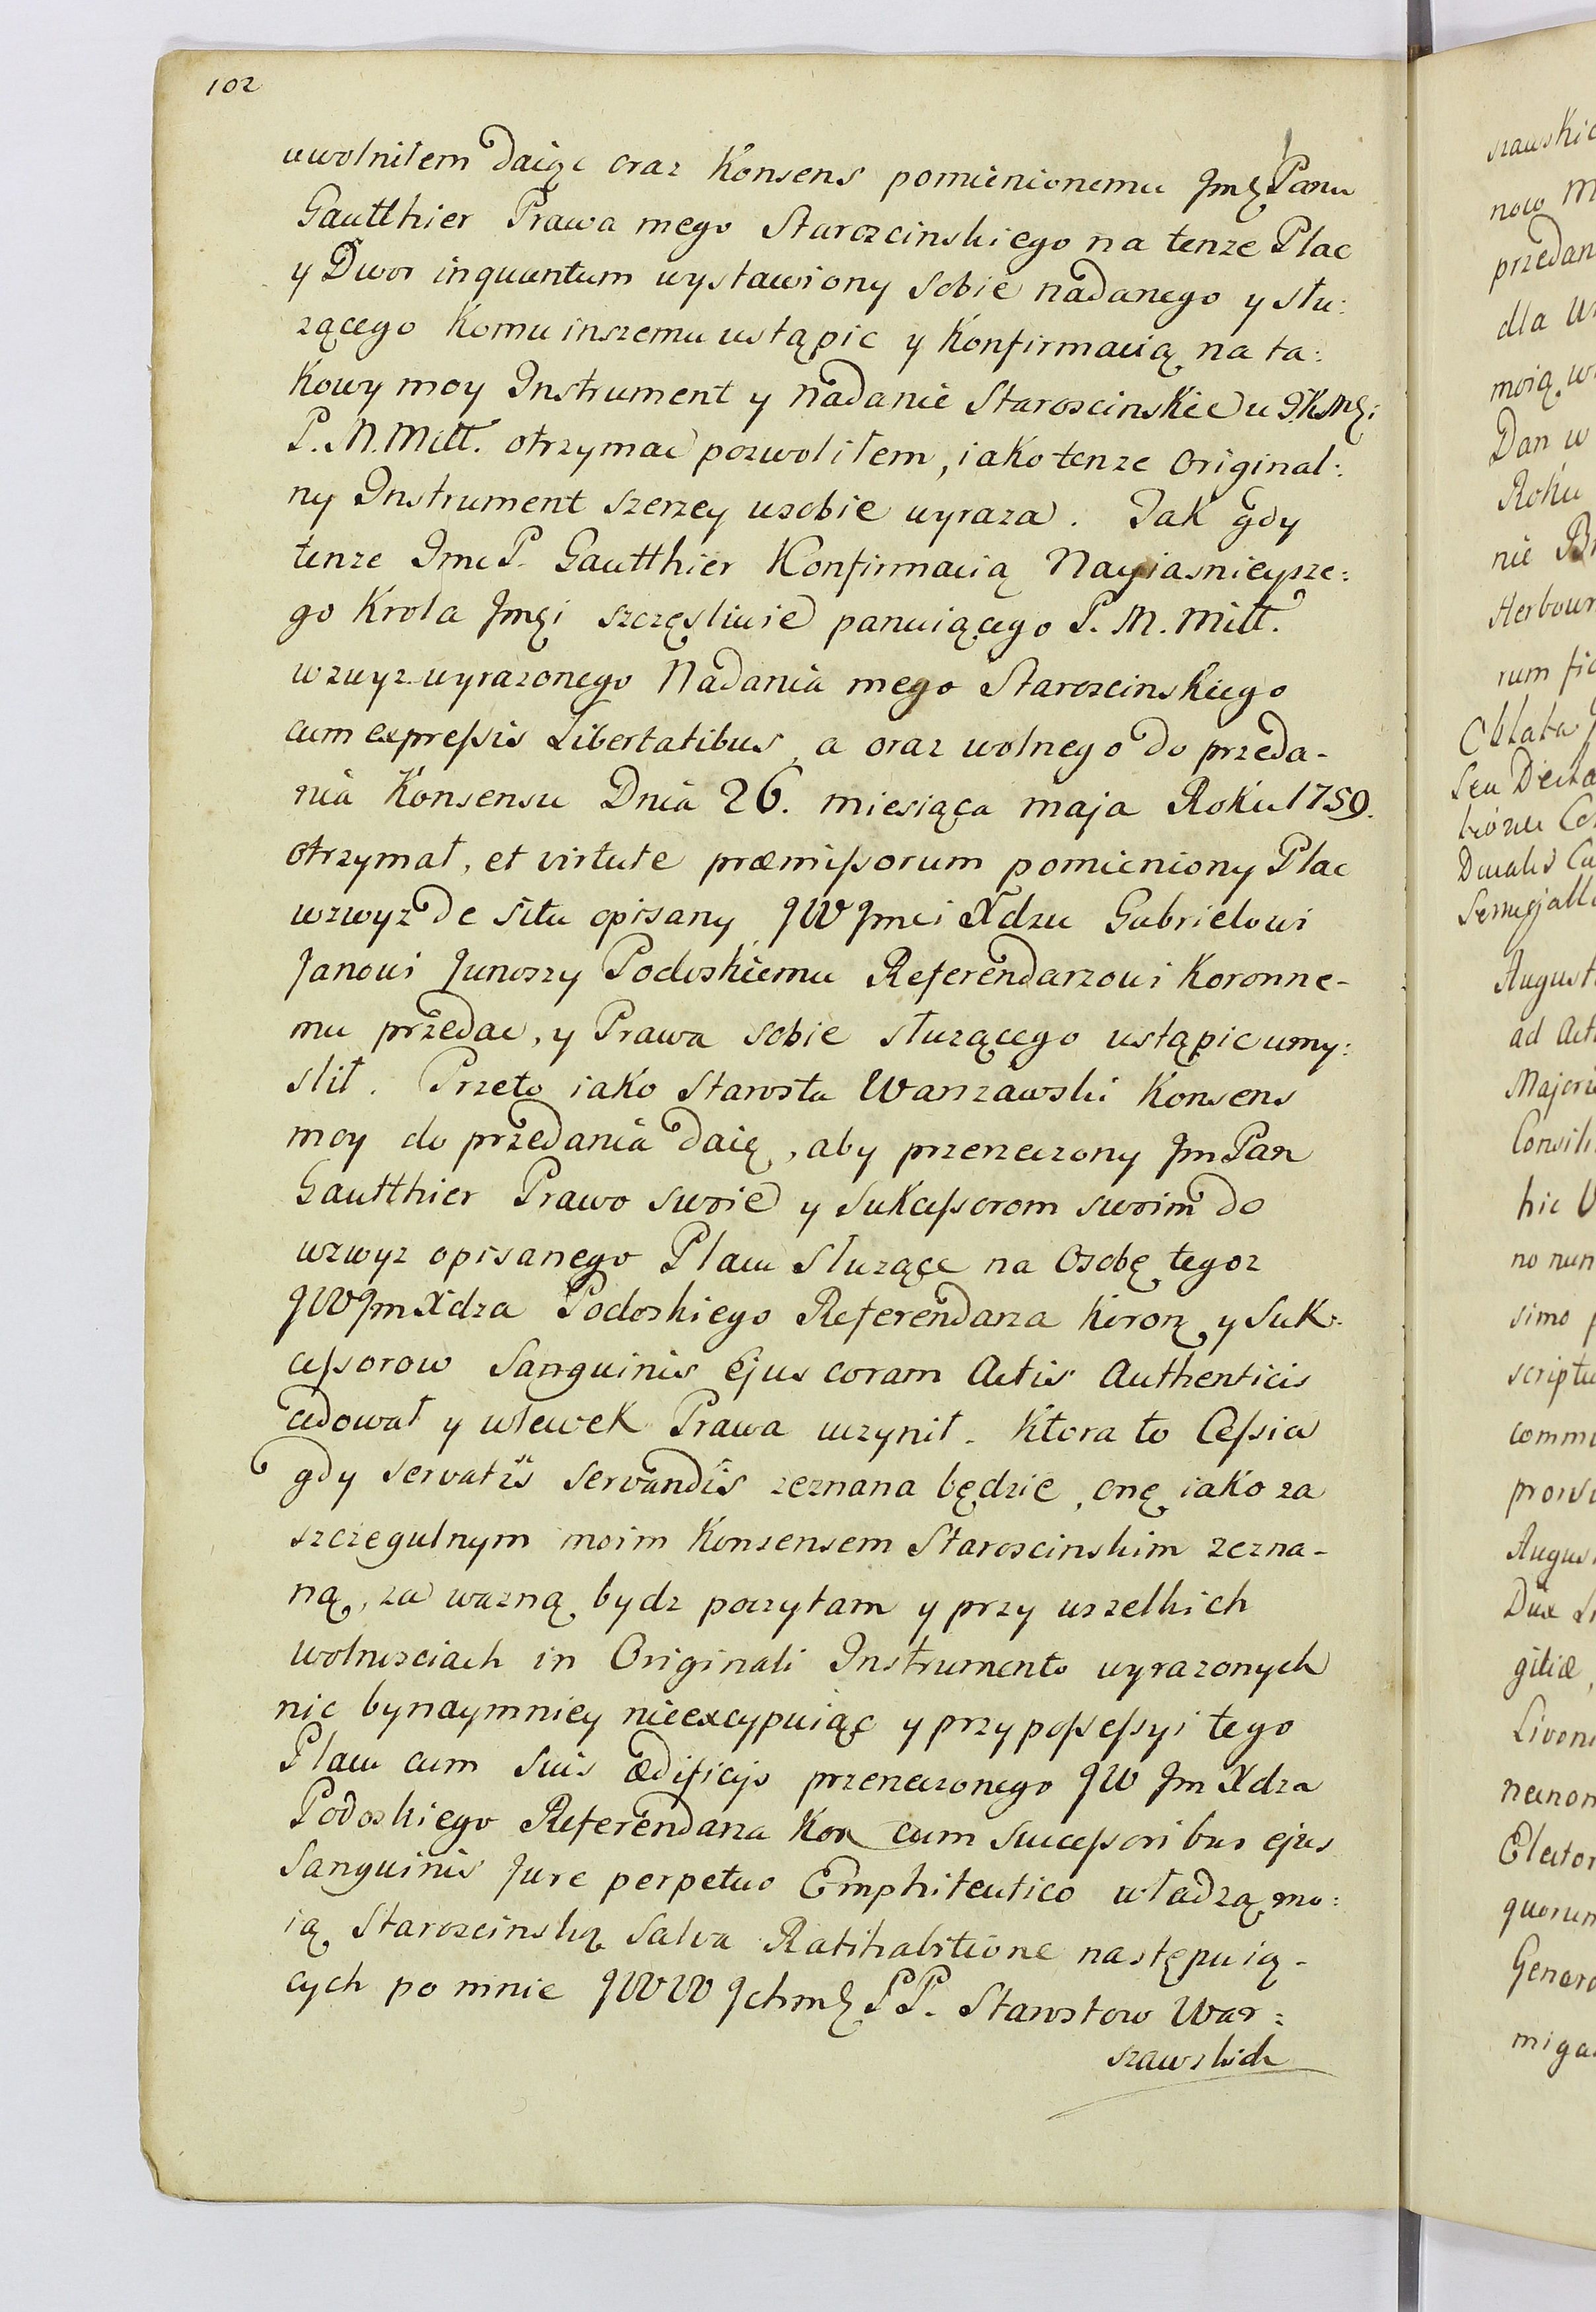 102
uwolniłem daiąc oraz Konsens pomienionemu Jmę Panu
Gautthier Prawa mego Staroscinskiego na tenze Plac
y Dwor inquantum wystawiony sobie nadanego y słu:
zącego komu inszemu ustąpic y Konfirmacią na ta:
kowy moy Instrument y nadanie Staroscinskie u JKMę:
P. N. Mitt. otrzymac pozwoliłem, iako tenze original:
ny Instrument szerzey w sobie wyraza. Jak gdy
tenze Jmć P. Gautthier Konfirmacią Nayiasnieysze:
go Krola Jmęi szczęsliwie panuiącego P. M. Mitt.
wzwyz wyrazonego Nadania mego Staroscinskiego
cum expressis Libertatibus, a oraz wolnego do przeda-
nia Konsensu Dnia 26. miesiąca maja Roku 1759.
otrzymał, et virtute præmissorum pomieniony Plac
wzwyz de situ opisany JW Jmci Xdzu Gabrielowi
Janowi Junoszy Podoskiemu Referendarzowi Koronne-
mu przedac, y Prawa sobie słuzącego ustąpic umy:
slił. Przeto iako Starosta Warszawski Konsens
moy do przedania daię, aby przerzeczony Jm Pan
Gautthier Prawo swoie y Sukcessorom swoim do
wzwyz opisanego Placu słuzące na Osobę tegoz
JW Jm Xdza Podoskiego Referendarza Koron y Suk-
cessorow Sanguinis Ejus coram Actis Authenticis
cedował y wlewek Prawa uczynił. Ktora to Cessia
gdy servatis servandis zeznana będzie, onę iako za
szczegulnym moim Konsensem Staroscinskim zezna-
ną, za wazną bydz poczytam y przy wszelkich
wolnosciach in Originali Instrumento wyrazonych
nic bynaymniey nieexcypuiąc y przy possessyi tego
Placu cum suis ædificijs przerzeczonego JW Jm Xdza
Podoskiego Referendarza Kor cum Successoribus ejus
Sanguinis Jure perpetuo Emphiteutico władzą mo:
ią Staroscinską Salva Ratihabitione następuią-
cych po mnie JWW Jchmę PP. Starostow War:
szawskich
szawskic
now M
przedan
dla
moią w
Dan w
Roku
nie Br
Herbown
rum fi
Oblata
Seu
Augusti
ad Act
Majori
Consili
hic
no nun
simo p
scriptu
comm
provi
August
Dux Li
gitiæ,
Livoni
necnon
Elector
quorum
Genero
miga